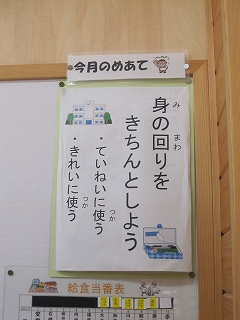 今月のめあて
身の回りを
きちんとしよう
・ていねいに使う
・きれいに使う
給食当番表